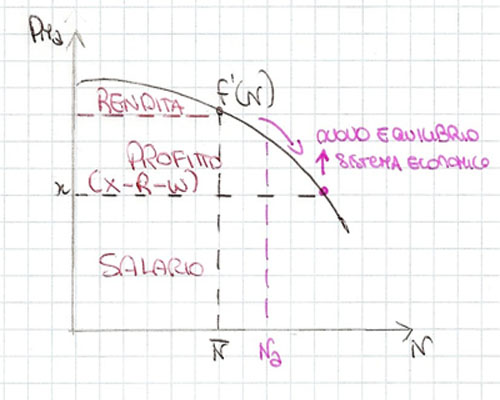 f'(N)
RENDITA
NUOVO EQUILIBRIO
SISTEMA ECONOMICO
PROFITTO
(X-R-W)
x
SALARIO
N̅
N₂
N